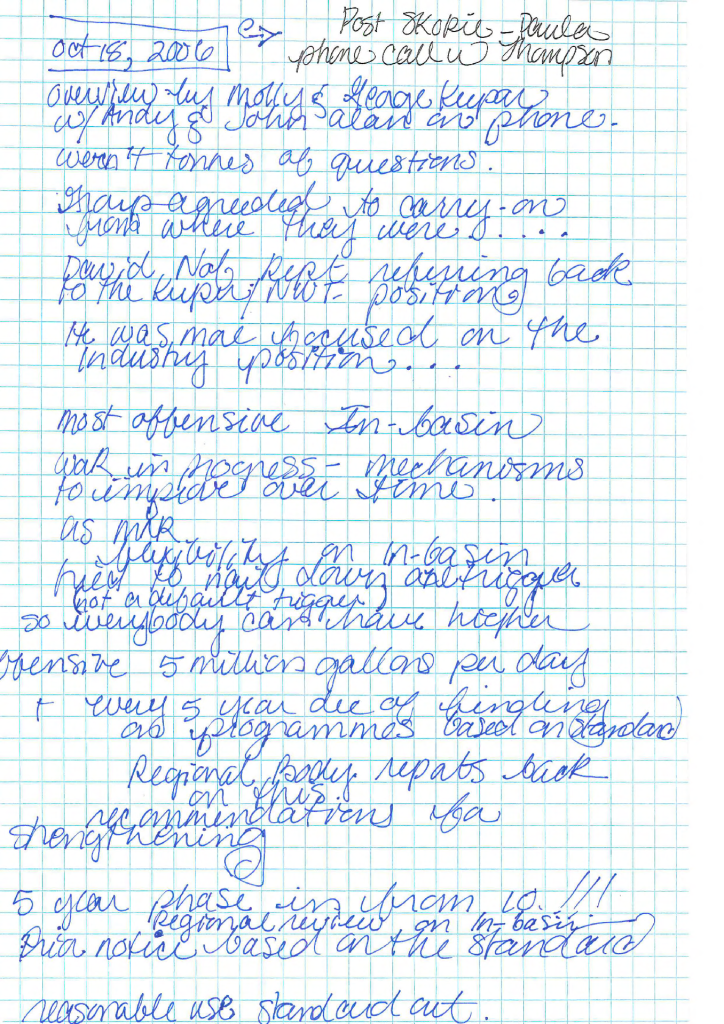 Oct 18, 2006
Post Skokie - Paula
phone call w Thompson
overview by Molly & George Kupar
w/ Andy & John alan on phone.
weren't tonnes of questions.
Group agreeded to carry-on
from where they were . . . . .
David Nat. kept refering back
to the Kupar/NWF position
He was more focused on the
industry position . . .
most offensive In-basin
work in progress - mechanisms
to improve over time.
as MTR
flexibility on in-basin
tried to nail down one trigger
(not a default trigger)
so everybody can have higher
offensive 5 million gallons per day
+ every 5 year dec of finding
on programmes based on standard
Regional Body reports back
on this
recommendations for
strengthening
5 year phase in from 10. !!!
Regional review on In-basin
Prior notice based on the standard
reasonable use standard out.